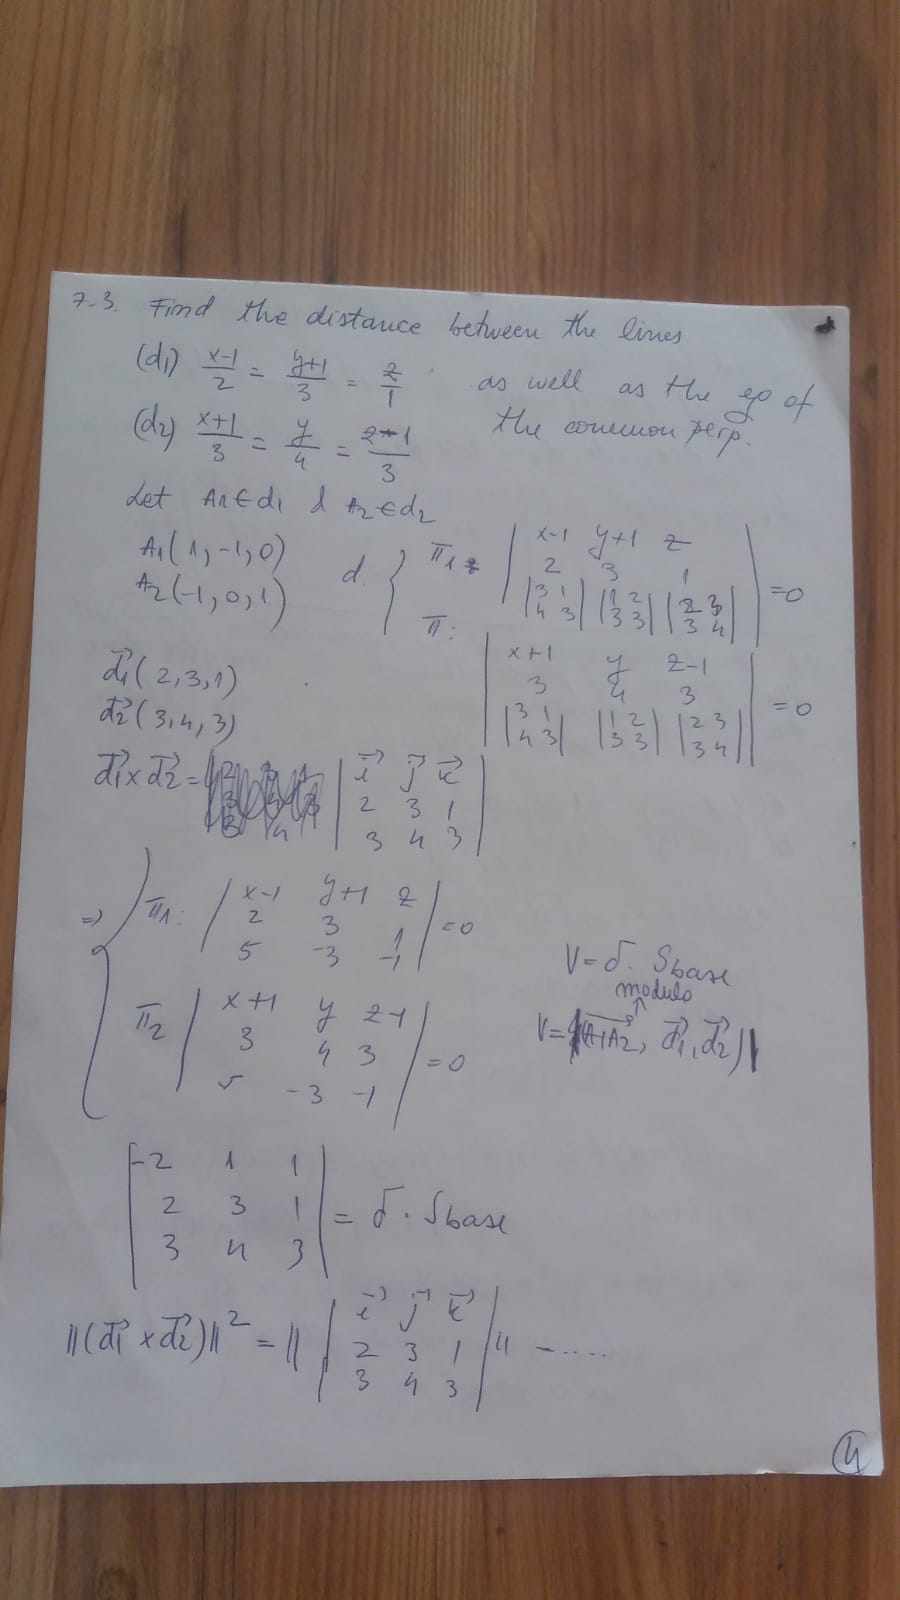 7.3. Find the distance between the lines
(d1) x-1/2 = y+1/3 = z/1 as well as the eq of
(d2) x+1/3 = y/4 = z-1/3 the common perp.
Let A1∈d1 d A2∈d2
A1(1,-1,0)
A2(-1,0,1)
d { π1 | x-1 y+1 z
2 3 1
|3 1 4 3| |1 2 3 3| |2 3 3 4| | = 0
π: | x+1 y z-1
3 4 3
|3 1 4 3| |1 2 3 3| |2 3 3 4| | = 0
d1→(2,3,1)
d2→(3,4,3)
d1→ x d2→ = | i→ j→ k→
2 3 1
3 4 3 |
=> { π1: | x-1 y+1 z
2 3 1
5 -3 -1 | = 0
π2 | x+1 y z-1
3 4 3
5 -3 -1 | = 0
V = δ. Sbase
modulo
V = |(A1A2→, d1→, d2→)|
| -2 1 1
2 3 1
3 4 3 | = δ. Sbase
||(d1→ x d2→)||² = || | i→ j→ k→
2 3 1
3 4 3 | || -.....
4